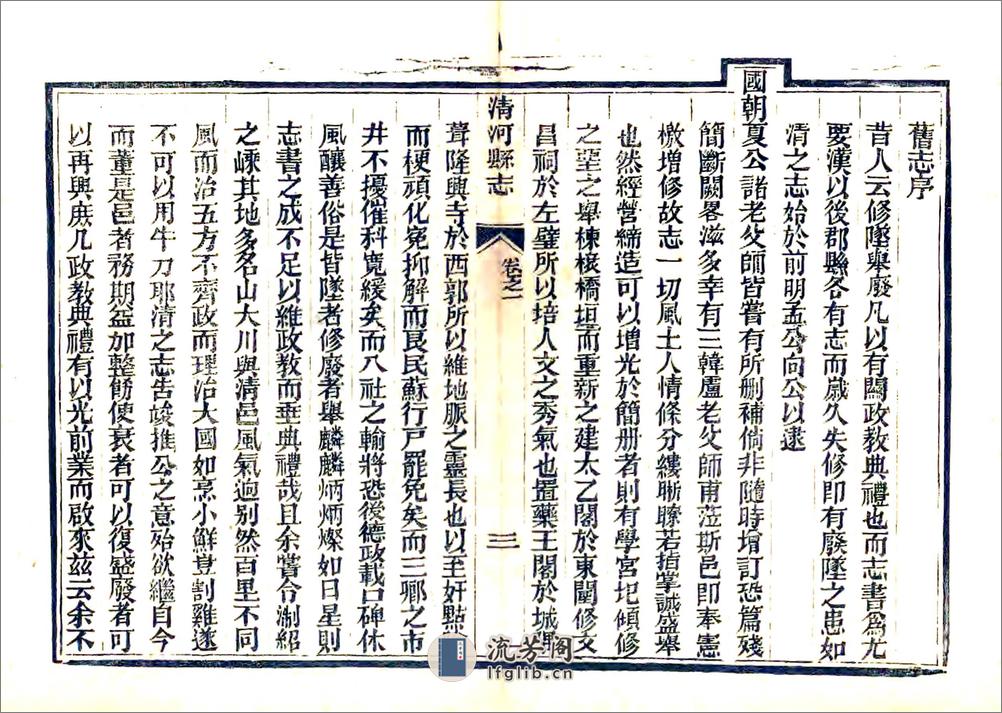 舊志序
昔人云修墜舉廢凡以有關政教典禮也而志書為尤
要漢以後郡縣各有志而歲久失修即有廢墜之患如
清之志始於前明孟公向公以逮
國朝夏公諸老父師皆嘗有所刪補倘非隨時增訂恐篇殘
簡斷闕畧滋多幸有三韓盧老父師甫蒞斯邑即奉憲
檄增修故志一切風土人情條分縷晰瞭若指掌誠盛舉
也然經營締造可以增光於簡册者則有學宮圮傾修
之堊之舉棟榱橋垣而重新之建太乙閣於東闉修文
昌祠於左壁所以培人文之秀氣也置藥王閣於城
清河縣志
卷之一
三
聳隆興寺於西郭所以維地脈之靈長也以至奸黠
而梗頑化寃抑解而良民蘇行戸罷免矣而三鄉之市
井不擾催科寬緩矣而八社之輸將恐後德政載口碑休
風釀善俗是皆墜者修廢者舉麟麟炳炳燦如日星則
志書之成不足以維政教而垂典禮哉且余嘗合淛紹
之嵊其地多名山大川與清邑風氣逈别然百里不同
風而治五方不齊政而理治大國如烹小鮮豈割雞遂
不可以用牛刀耶清之志告竣推公之意殆欲繼自今
而董是邑者務期益加整飭使衰者可以復盛廢者可
以再興庶几政教典禮有以光前業而啟來茲云余不
流芳閣
lfglib.cn